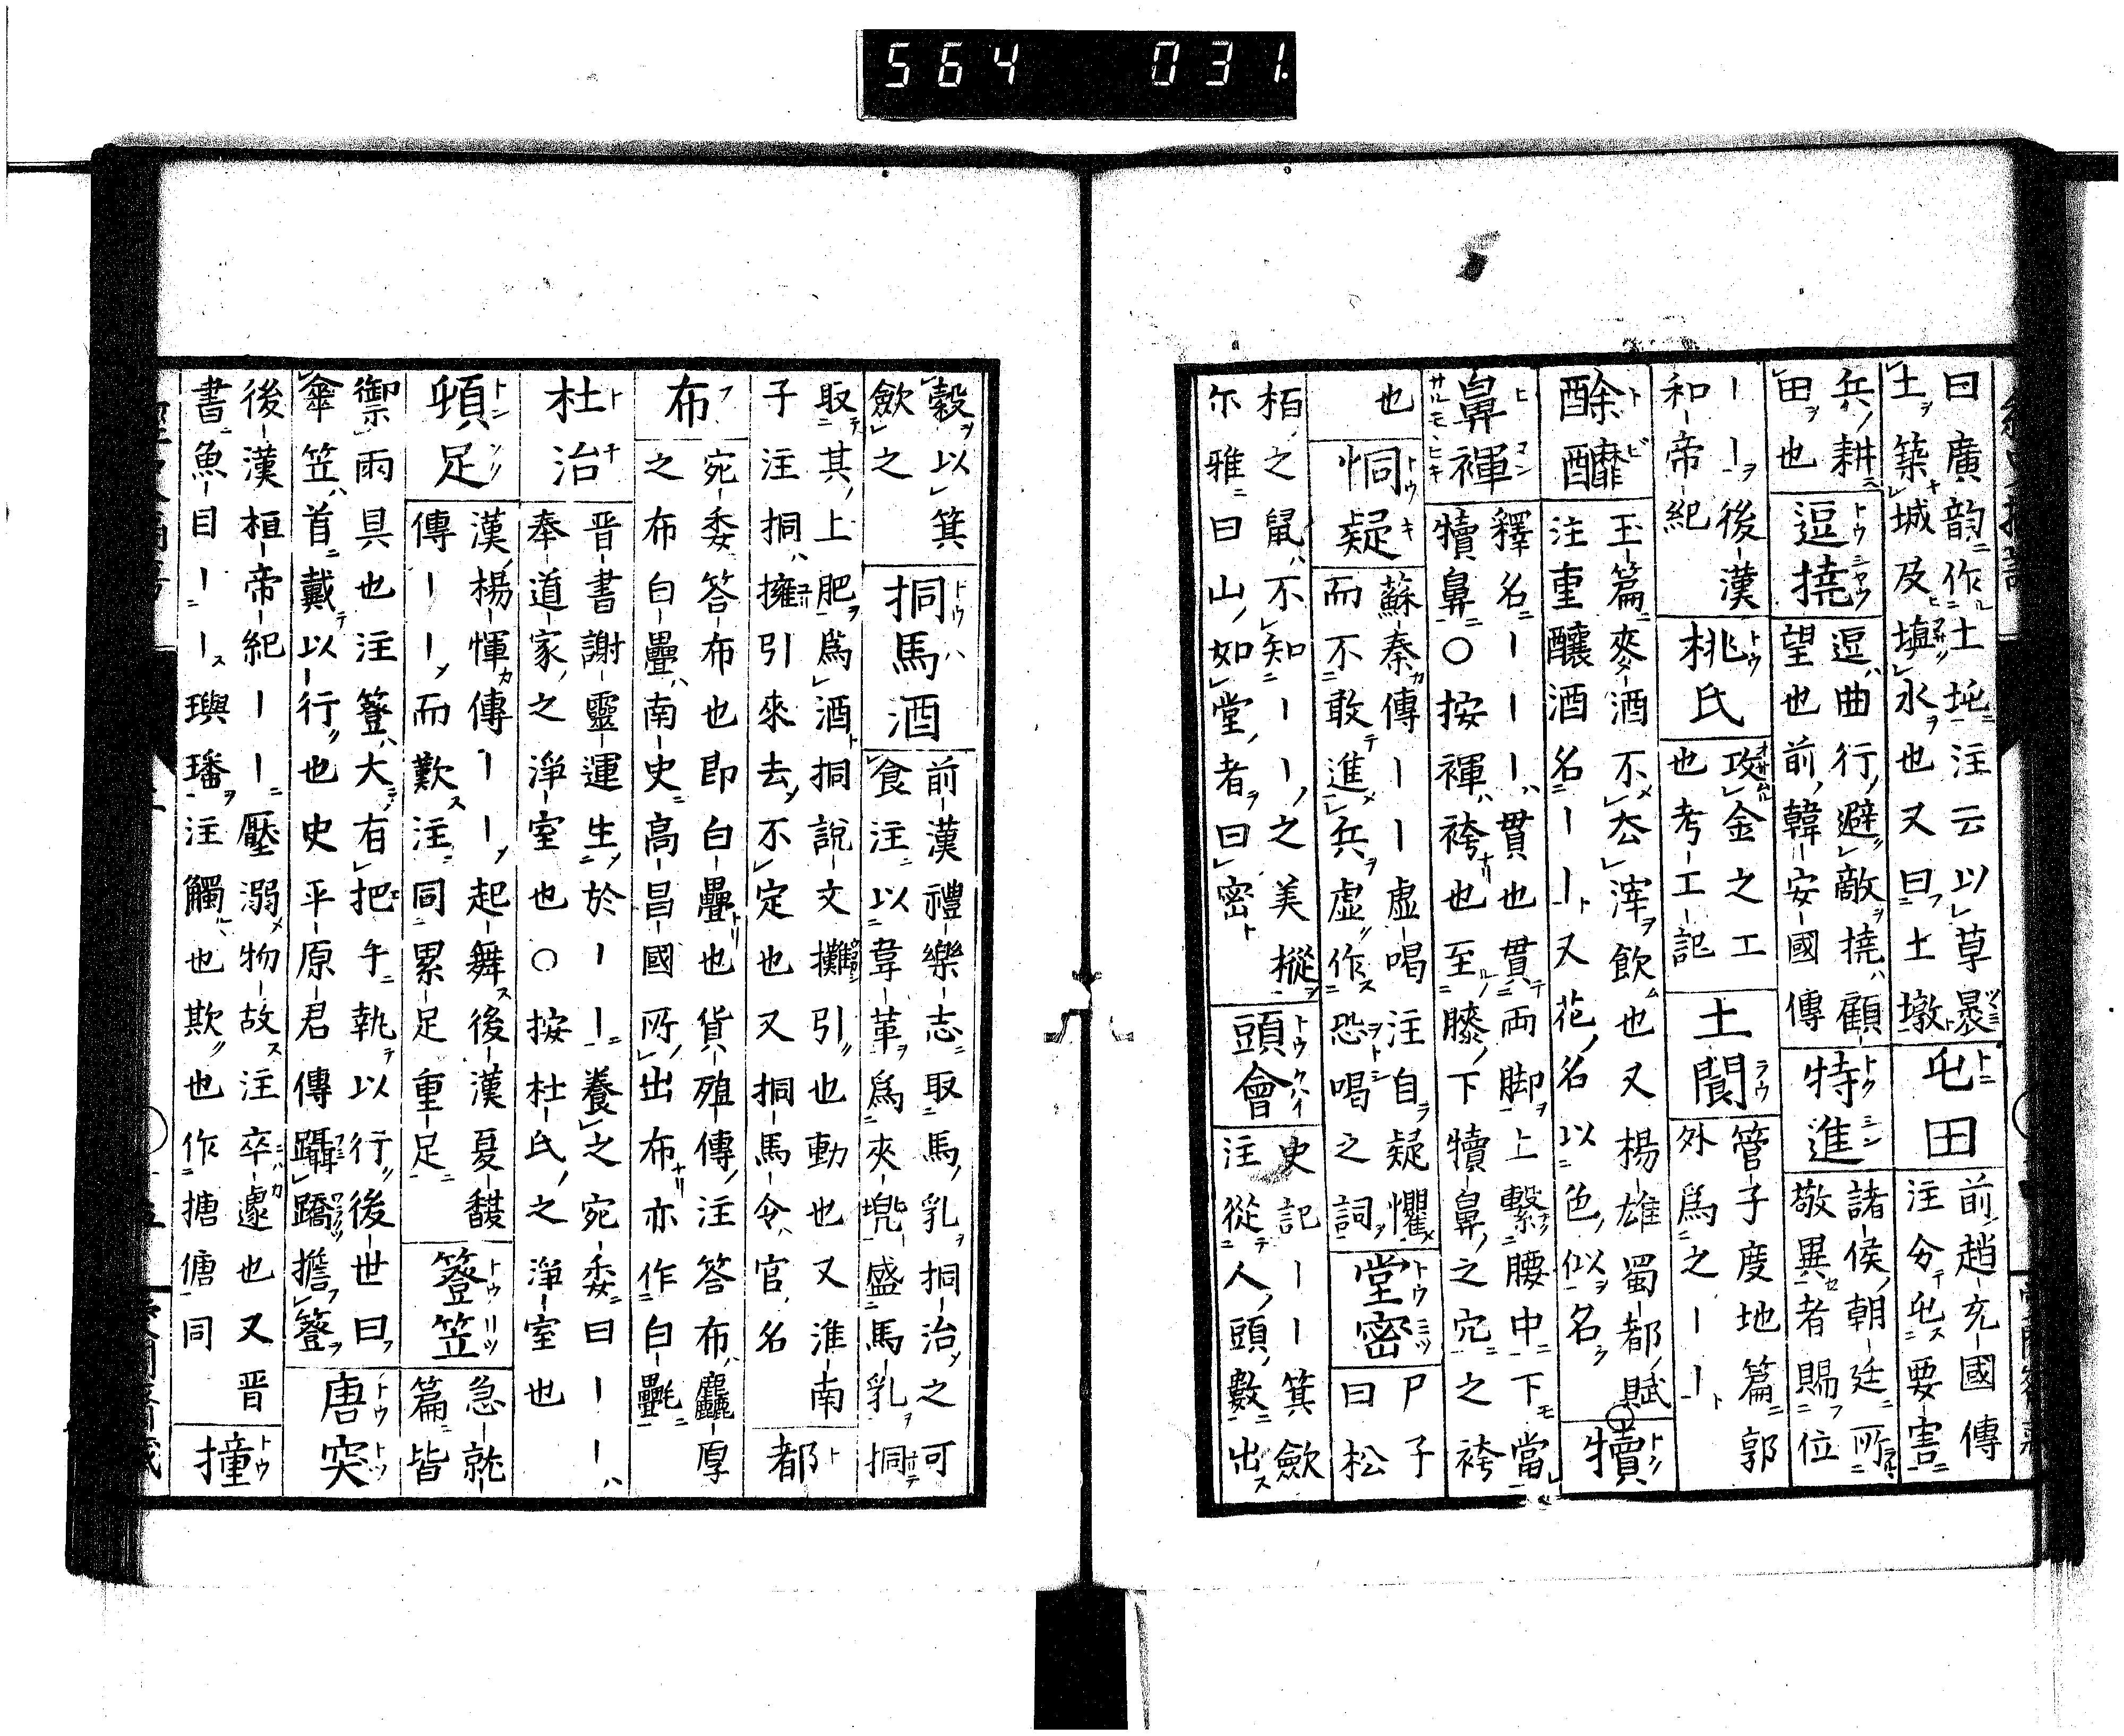 564 031.
曰廣韵作土坉注云以草褁
土築城及塡水也又曰土墩
屯田
前趙充國傳
注分屯要害
兵耕
田也
逗撓
逗曲行避敵撓顧
望也前韓安國傳
特進
諸侯朝廷所
敬異者賜位
ーー後漢
和帝紀
桃氏
攻金之工
也考工記
土閬
管子度地篇郭
外爲之ーー
酴醿
玉篇麥酒不去滓飲也又楊雄蜀都賦
注重釀酒名ーー又花名以色似名
犢
鼻褌
釋名ーーー貫也貫両脚上繫腰中下當
犢鼻○按褌袴也至膝下犢鼻之穴之袴
也
恫疑
蘇秦傳ーー虛喝注自疑懼
而不敢進兵虛作恐喝之詞
堂密
尸子
曰松
栢之鼠不知ーー之美樅
尓雅曰山如堂者曰密
頭會
史記ーー箕歛
注從人頭數出
穀以箕
歛之
挏馬酒
前漢禮樂志取馬乳挏治之可
食注以韋革爲夾兠盛馬乳挏
取其上肥爲酒挏說文攤引也動也又淮南
子注挏擁引來去不定也又挏馬令官名
都
布
宛委答布也即白疊也貨殖傳注答布麤厚
之布白疊南史高昌國所出布亦作白㲲
杜治
晋書謝靈運生於ーー養之宛委曰ーー
奉道家之淨室也○按杜氏之淨室也
頓足
漢楊惲傳ーー起舞後漢夏馥
傳ーー而歎注同累足重足
簦笠
急就
篇皆
御雨具也注簦大有把手執以行後世曰
傘笠首戴以行也史平原君傳躡蹻擔簦
唐突
後漢桓帝紀ーー壓溺物故注卒遽也又晋
書魚目ーー璵璠注觸也欺也作搪傏同
撞